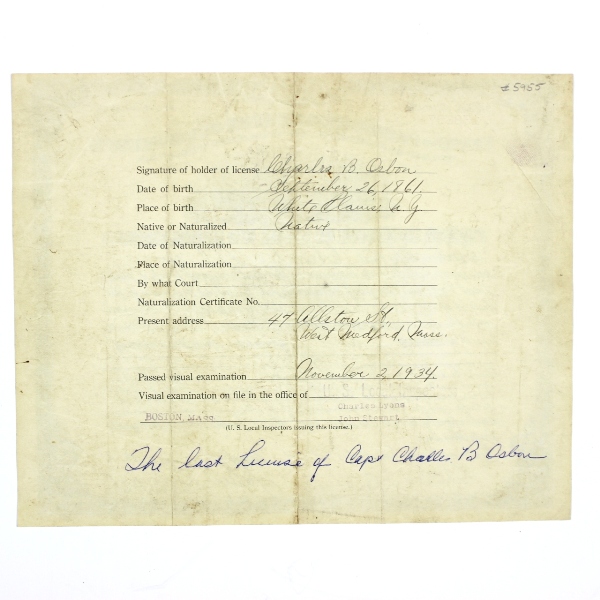 #5955
Signature of holder of license Charles B. Osbon
Date of birth September 26, 1861.
Place of birth White Plains N.Y.
Native or Naturalized Native
Date of Naturalization
Place of Naturalization
By what Court
Naturalization Certificate No.
Present address 47 Allston St,
West Medford, Mass.
Passed visual examination November 2, 1934.
Visual examination on file in the office of
Charles Lyons
BOSTON, MASS John Stewart
(U. S. Local Inspectors issuing this license.)
The last License of Capt Charles B Osbon